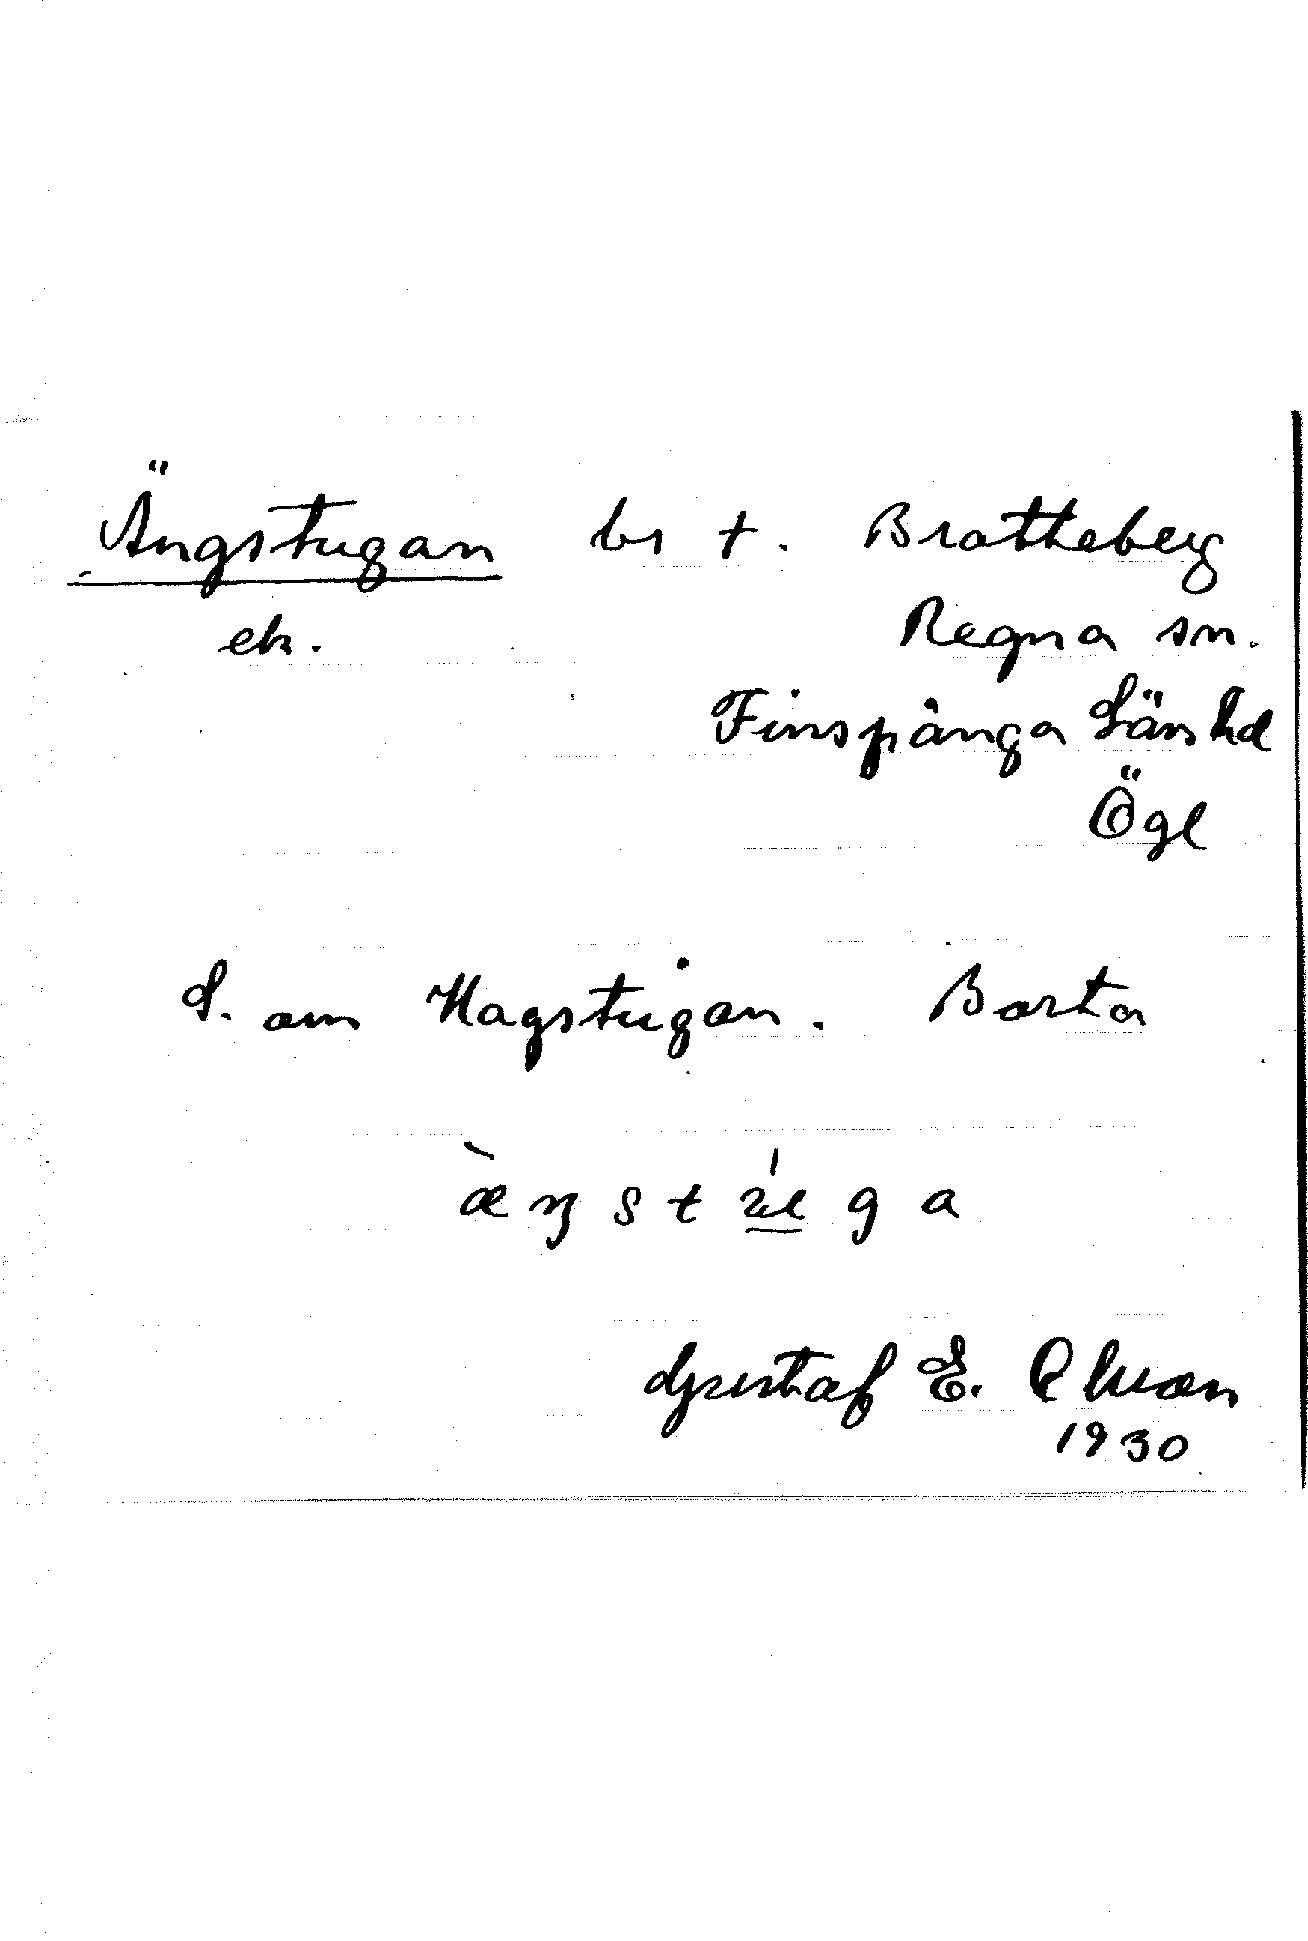 Ängstugan bs t. Brotteberg
ek. Regna sn.
Finspånga Läns hd
Ögl
S. om Hagstugan. Borta
æ̀ŋst úe ga
Gustaf E. Ohlson
1930